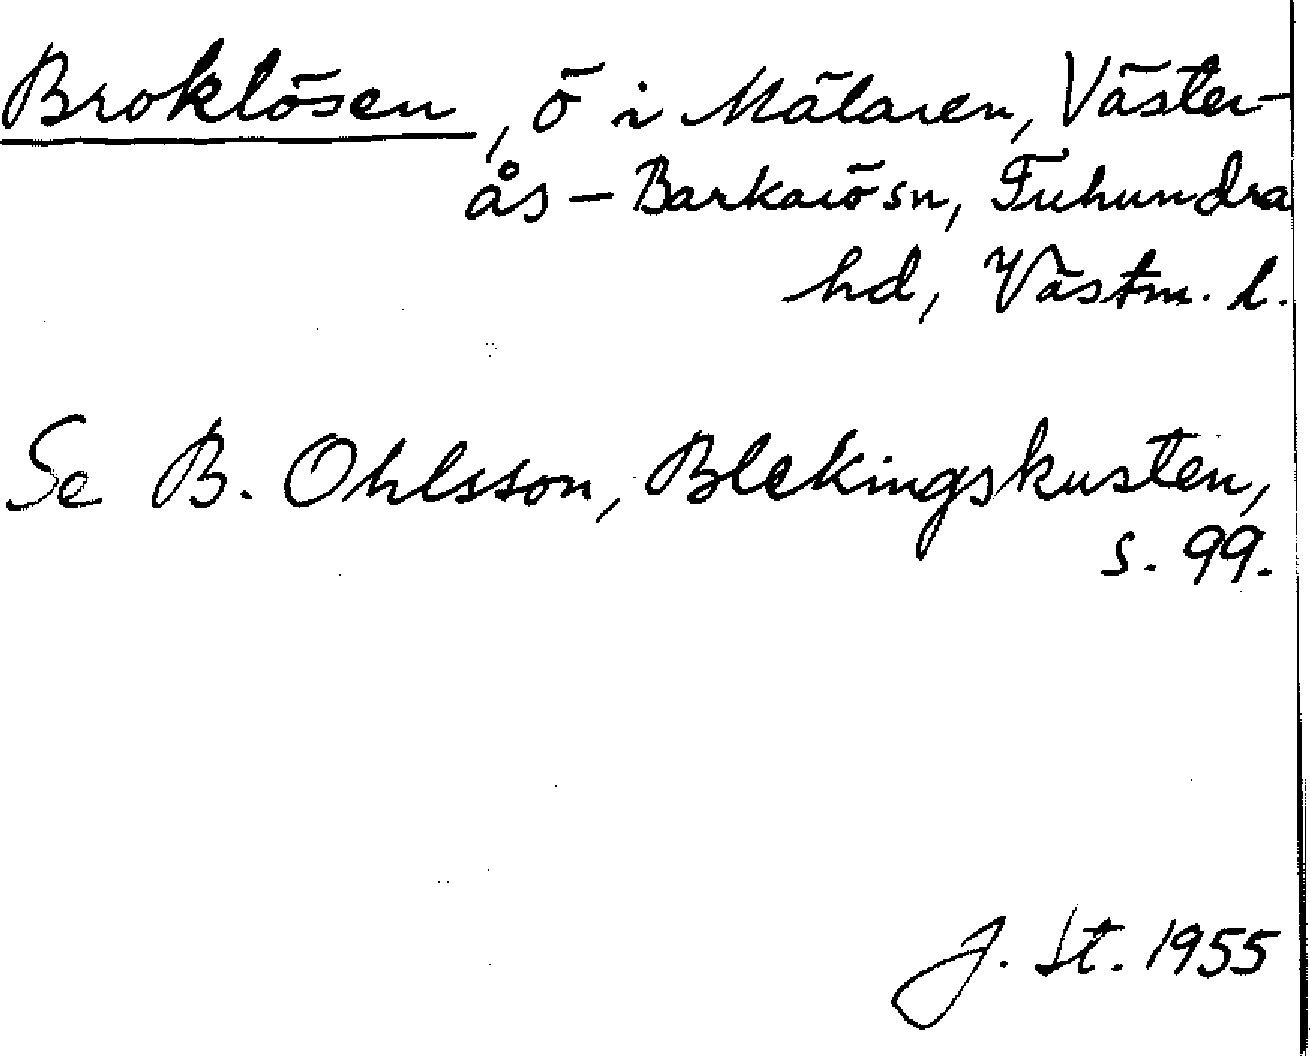 Broklösen, ö i Mälaren, Väster-
ås - Barkarö sn, Tuhundra
hd, Västm. l.
Se B. Ohlsson, Blekingskusten,
s. 99.
J. St. 1955